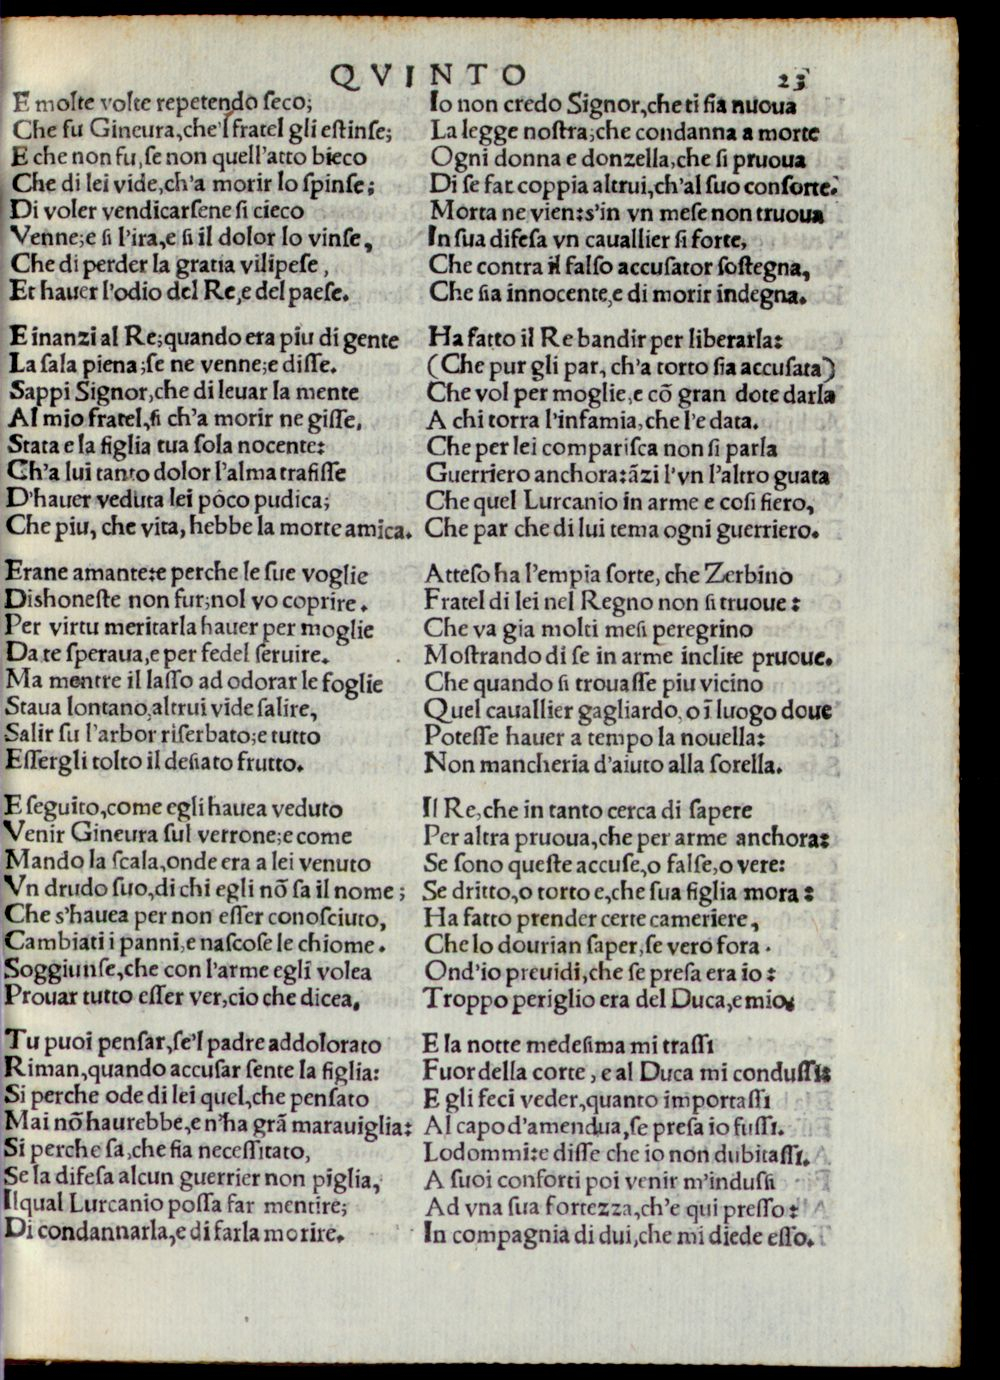 QVINTO 23
E molte volte repetendo ſeco;
Che fu Gineura, che'l fratel gli eſtinſe;
E che non fu, ſe non quell'atto bieco
Che di lei vide, ch'a morir lo ſpinſe;
Di voler vendicarſene ſi cieco
Venne; e ſi l'ira, e ſi il dolor lo vinſe,
Che di perder la gratia vilipeſe,
Et hauer l'odio del Re, e del paeſe.
E inanzi al Re; quando era piu di gente
La ſala piena; ſe ne venne; e diſſe.
Sappi Signor, che di leuar la mente
Al mio fratel, ſi ch'a morir ne giſſe,
Stata e la figlia tua ſola nocente:
Ch'a lui tanto dolor l'alma trafiſſe
D'hauer veduta lei poco pudica;
Che piu, che vita, hebbe la morte amica.
Erane amante: e perche le ſue voglie
Dishoneſte non fur; nol vo coprire.
Per virtu meritarla hauer per moglie
Da te ſperaua, e per fedel ſeruire.
Ma mentre il laſſo ad odorar le foglie
Staua lontano, altrui vide ſalire,
Salir ſu l'arbor riſerbato; e tutto
Eſſergli tolto il deſiato frutto.
E ſeguito, come egli hauea veduto
Venir Gineura ſul verrone; e come
Mando la ſcala, onde era a lei venuto
Vn drudo ſuo, di chi egli nõ ſa il nome;
Che s'hauea per non eſſer conoſciuto,
Cambiati i panni, e naſcoſe le chiome.
Soggiunſe, che con l'arme egli volea
Prouar tutto eſſer ver, cio che dicea.
Tu puoi penſar, ſe'l padre addolorato
Riman, quando accuſar ſente la figlia:
Si perche ode di lei quel, che penſato
Mai nõ haurebbe, e n'ha grã marauiglia:
Si perche ſa, che fia neceſſitato,
Se la difeſa alcun guerrier non piglia,
Ilqual Lurcanio poſſa far mentire;
Di condannarla, e di farla morire.
Io non credo Signor, che ti ſia nuoua
La legge noſtra; che condanna a morte
Ogni donna e donzella, che ſi pruoua
Di ſe far coppia altrui, ch'al ſuo conſorte.
Morta ne vien: s'in vn meſe non truoua
In ſua difeſa vn cauallier ſi forte,
Che contra il falſo accuſator ſoſtegna,
Che ſia innocente, e di morir indegna.
Ha fatto il Re bandir per liberarla:
(Che pur gli par, ch'a torto ſia accuſata)
Che vol per moglie, e cõ gran dote darla
A chi torra l'infamia, che l'e data.
Che per lei compariſca non ſi parla
Guerriero anchora: ãzi l'vn l'altro guata
Che quel Lurcanio in arme e coſi fiero,
Che par che di lui tema ogni guerriero.
Atteſo ha l'empia ſorte, che Zerbino
Fratel di lei nel Regno non ſi truoue:
Che va gia molti meſi peregrino
Moſtrando di ſe in arme inclite pruoue.
Che quando ſi trouaſſe piu vicino
Quel cauallier gagliardo, o ĩ luogo doue
Poteſſe hauer a tempo la nouella:
Non mancheria d'aiuto alla ſorella.
Il Re, che in tanto cerca di ſapere
Per altra pruoua, che per arme anchora:
Se ſono queſte accuſe, o falſe, o vere:
Se dritto, o torto e, che ſua figlia mora:
Ha fatto prender certe cameriere,
Che lo dourian ſaper, ſe vero fora.
Ond'io preuidi, che ſe preſa era io:
Troppo periglio era del Duca, e mio.
E la notte medeſima mi traſſi
Fuor della corte, e al Duca mi conduſſi:
E gli feci veder, quanto importaſſi
Al capo d'amendua, ſe preſa io fuſſi.
Lodommi: e diſſe che io non dubitaſſi.
A ſuoi conforti poi venir m'induſſi
Ad vna ſua fortezza, ch'e qui preſſo:
In compagnia di dui, che mi diede eſſo.